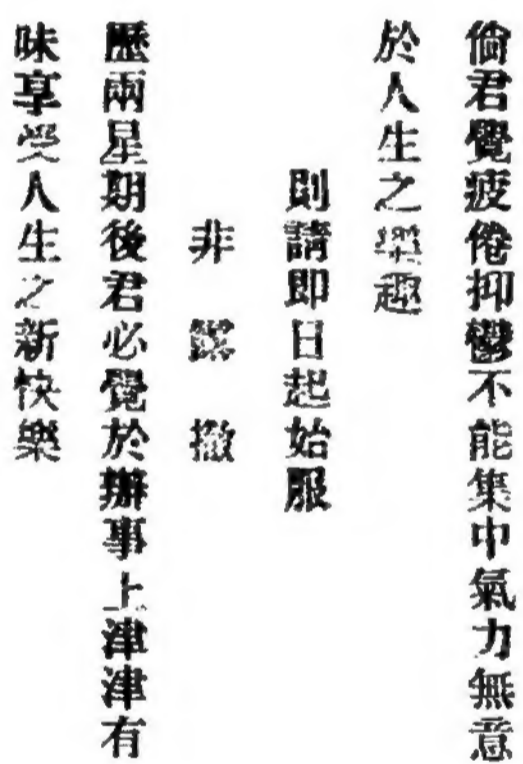 倘君覺疲倦抑鬱不能集中氣力無意
於人生之樂趣
則請即日起始服
非 撤
歷兩星期後君必覺於辦事上津津有
味享受人生之新快樂